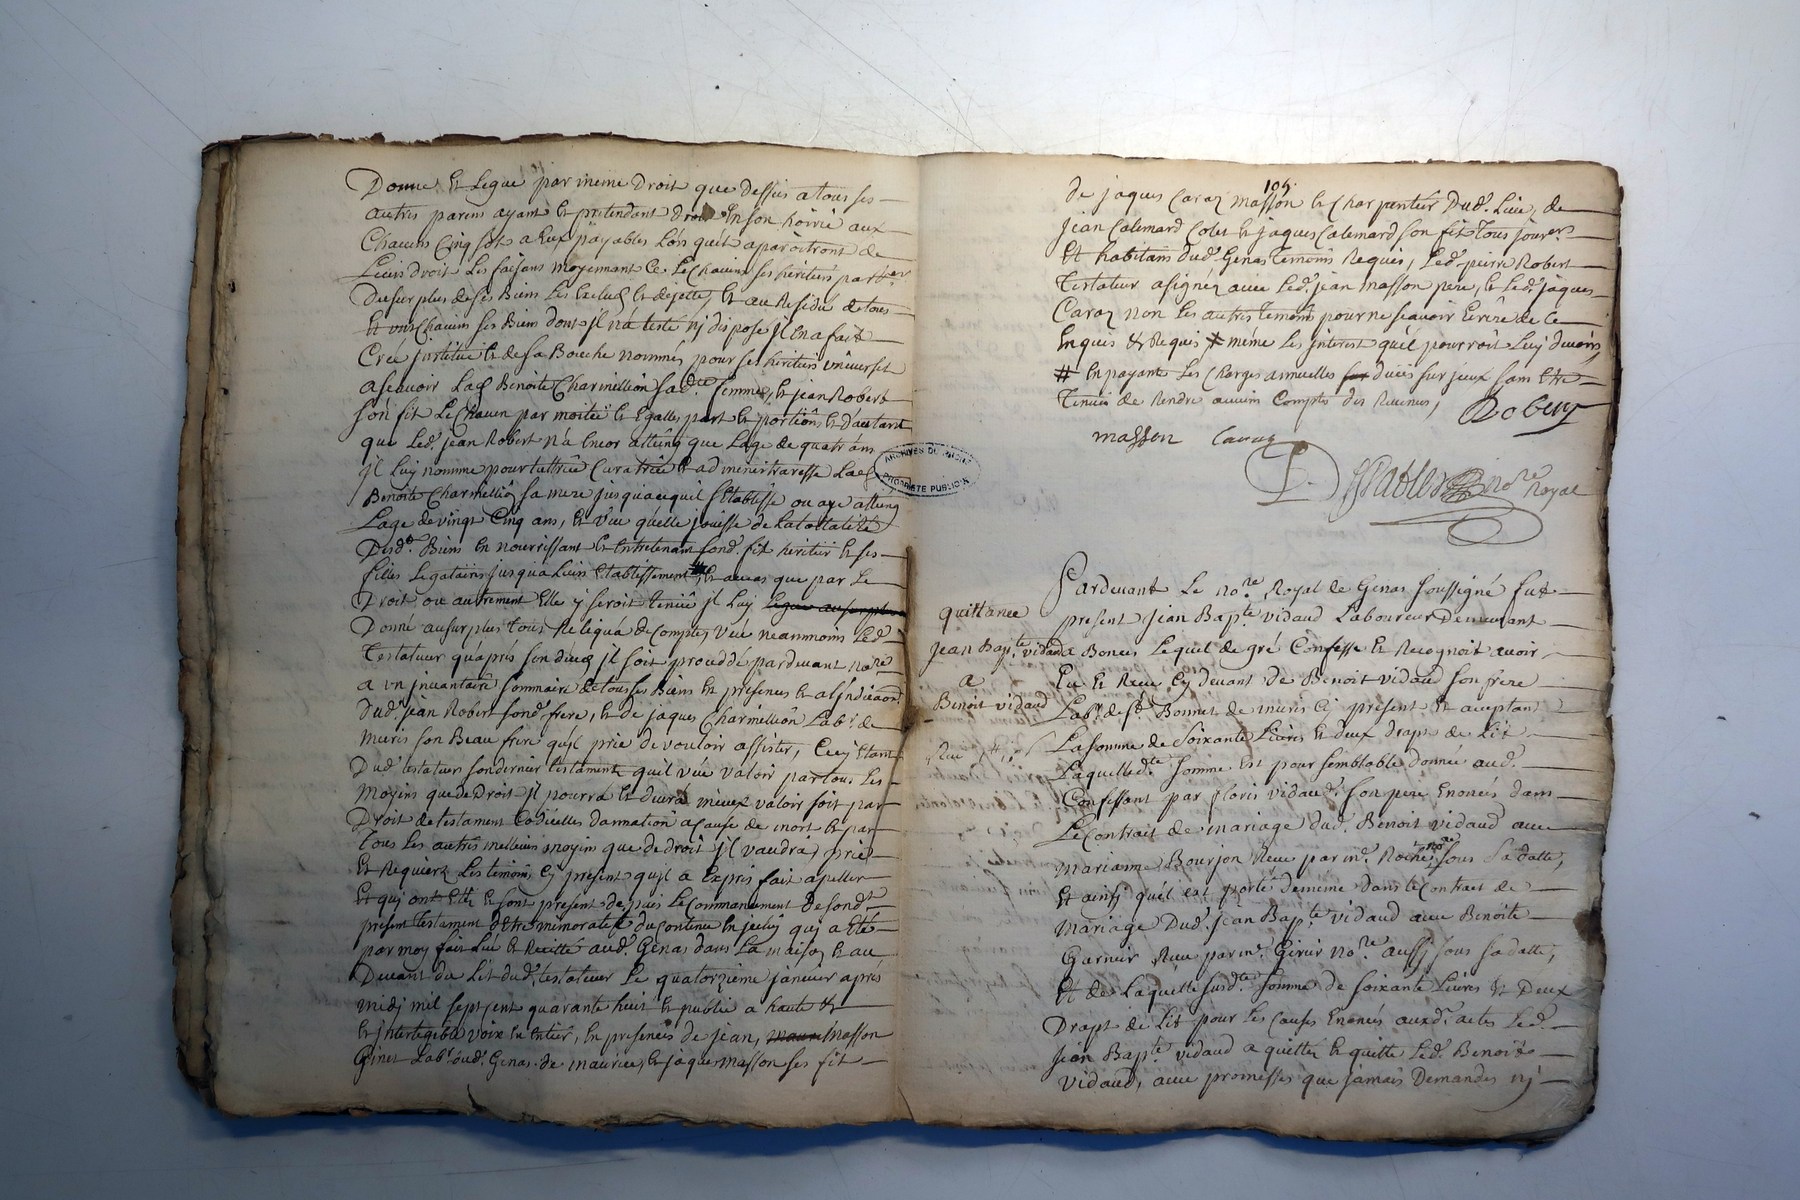 Donne et Legue par meme Droit que dessus a tous ses
autres parens ayant et pretendant droit En son hoirie aux
Chacuns Cinq sols a Eux payables Lors quil aparoitront de
Leurs droit Les faisans moyennant Ce Le Chacuns ses heritiers par
Du surplus de ses Biens Les Exclud et dejette, et au Residu de tous
Et uns Chacuns ses Biens dont jl n'a testé nj dispose jl En a fait
Créé jnstitué et de sa Bouche nommés pour ses heritiers universel
a sçavoir Lad Benoite Charmellion sa dte femme, et jean Robert
son fit Le Chacun par moitié et Egalles part et portions et d'autant
que Led. jean Robert n'a Encor atteing que Lage de quatr'ans
jl Luy nomme pour tuttrice Curatrice et administraresse Lad
Benoite Charmellion sa mere jusquacequil s'Etablisse ou aye atteing
Lage de vingt Cinq ans, et veu quelle jouisse de la totalité
Desds. Biens En nourrissant et Entretenant sond. fit heritier et ses
filles Legataires jusqua Leurs Etablissement, et au cas que par Le
Droit ou autrement Elle y seroit tenue jl Luy legue au surplus
Donne au surplus tous Reliqua de Comptes, veu neanmoins Led
testateur qu'apres son deces jl soit procedde pardevant nore
a un jnvantaire sommaire de tous ses Biens En presence et a L'jndication
Dud. jean Robert sond. frere, et de jaques Charmellion Labr. de
Muris son Beau frere qu'jl prie de vouloir assister, Cecy Etant
Dud testateur son dernier testament quil veu valoir par tous Les
Moyens que de Droit jl pourra et devra mieux valoir soit par
Droit de testament Codicelles donnation a Cause de mort et par
tous Les autres meilleurs moyens que de droit jl vaudra, prie
Et Requiers Les temoins Cy present qujl a Expres fait apeller
Et quj ont Eté et sont present depuis Le Commancement de sondt
present testament detre memoratif du Contenu En jceluy qui a Eté
par moy fait Lu et Recitté aud. Genas dans La maison et au
Devant du Lit dud. testateur Le quatorzieme janvier apres
midj mil sept sent quarante huit et publié a haute et
et jntelegible voix En Entier, En presences de jean, Masson
Ginet Labr. aud. Genas. de maurice, et jaques Masson ses fit
105.
de jaques Caraz Masson et Charpentier Dud. Lieu, de
jean Calemard Colet et jaques Calemard son fit Tous jours
Et habitans dud. Genas Temoins Requis, Led. pierre Robert
Testateur a signéz avec Led. jean Masson pere, et Led. jaques
Caraz non Les autres Temoins pour ne sçavoir Ecrire de Ce
Enquis et Requis # même Les jnterest qu'el pourroit Luy devoirs,
# En payant Les Charges annuelles sur dues sur jceux sans Etre
Tenue de Rendre aucun Comptes des Revenus, Robert
masson Caraz
Desables nore Royal
Pardevant Le nore. Royal de Genas soussigné fut
quittance
present jean Bapte. vidaud Laboureur Demeurant
jean Bapte. vidaud
a Bonces Lequel de gré Confesse et Recognoit avoir
a
Eu et Receu Cy devant de Benoit vidaud son frere
Benoit vidaud
Labr. de St. Bonnet de mures Cy present Et aceptant
La somme de soixante Livres et deux drapt de Lit
Laquelle dte. somme Est pour semblable donnée aud.
Confessant par floris vidaud son pere Enoncés dans
Le Contrait de mariage dud. Benoit vidaud avec
Marianne Bourjon Receu par me. Roche nore sous sa datte,
Et ainsy quel est porté de meme dans Le Contrait de
Mariage Dud. jean Bapte. vidaud avec Benoite
Garnier Receu par me. Girier nore. aussj sous sa datte,
Et de Laquelle susdte. somme de soixante Livres Et Deux
Drapt de Lit pour les Causes Enoncés auxd. actes Led.
jean Bapte. vidaud a quitté et quitte Led. Benoit
vidaud, avec promesses que jamais Demandes nj
ARCHIVES DU
PROPRIETE PUBLIQUE